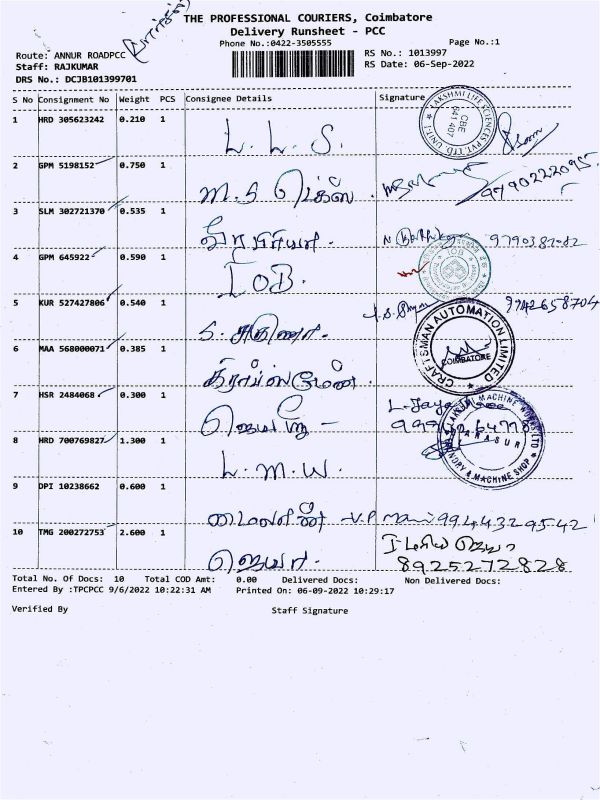 THE PROFESSIONAL COURIERS, Coimbatore
Delivery Runsheet - PCC
Phone No.:0422-3505555
Page No.:1
Route: ANNUR ROADPCC
RS No.: 1013997
Staff: RAJKUMAR
RS Date: 06-Sep-2022
DRS No.: DCJB101399701
S No Consignment No Weight PCS Consignee Details Signature
1 HRD 305623242 0.210 1
L. L. S.
LAKSHMI LIFE SCIENCES PVT. LTD. UNIT-1
CBE
641 407
2 GPM 5198152 0.750 1
M.S டெக்ஸ்
9790222095
3 SLM 302721370 0.535 1
4 GPM 645922 0.590 1
IOB.
IOB
5 KUR 527427806 0.540 1
9742658704
S.
CRAFTSMAN AUTOMATION LIMITED
COIMBATORE
6 MAA 568000071 0.385 1
7 HSR 2484068 0.300 1
L. Jaya
8 HRD 700769827 1.300 1
L. M. W.
LAKSHMI MACHINE WORKS LTD
ARASUR
FOUNDRY & MACHINE SHOP
9 DPI 10238662 0.600 1
V.P Mani 9944329542
10 TMG 200272753 2.600 1
ஜெயா.
8925272828
Total No. Of Docs: 10 Total COD Amt: 0.00 Delivered Docs: Non Delivered Docs:
Entered By :TPCPCC 9/6/2022 10:22:31 AM Printed On: 06-09-2022 10:29:17
Verified By Staff Signature